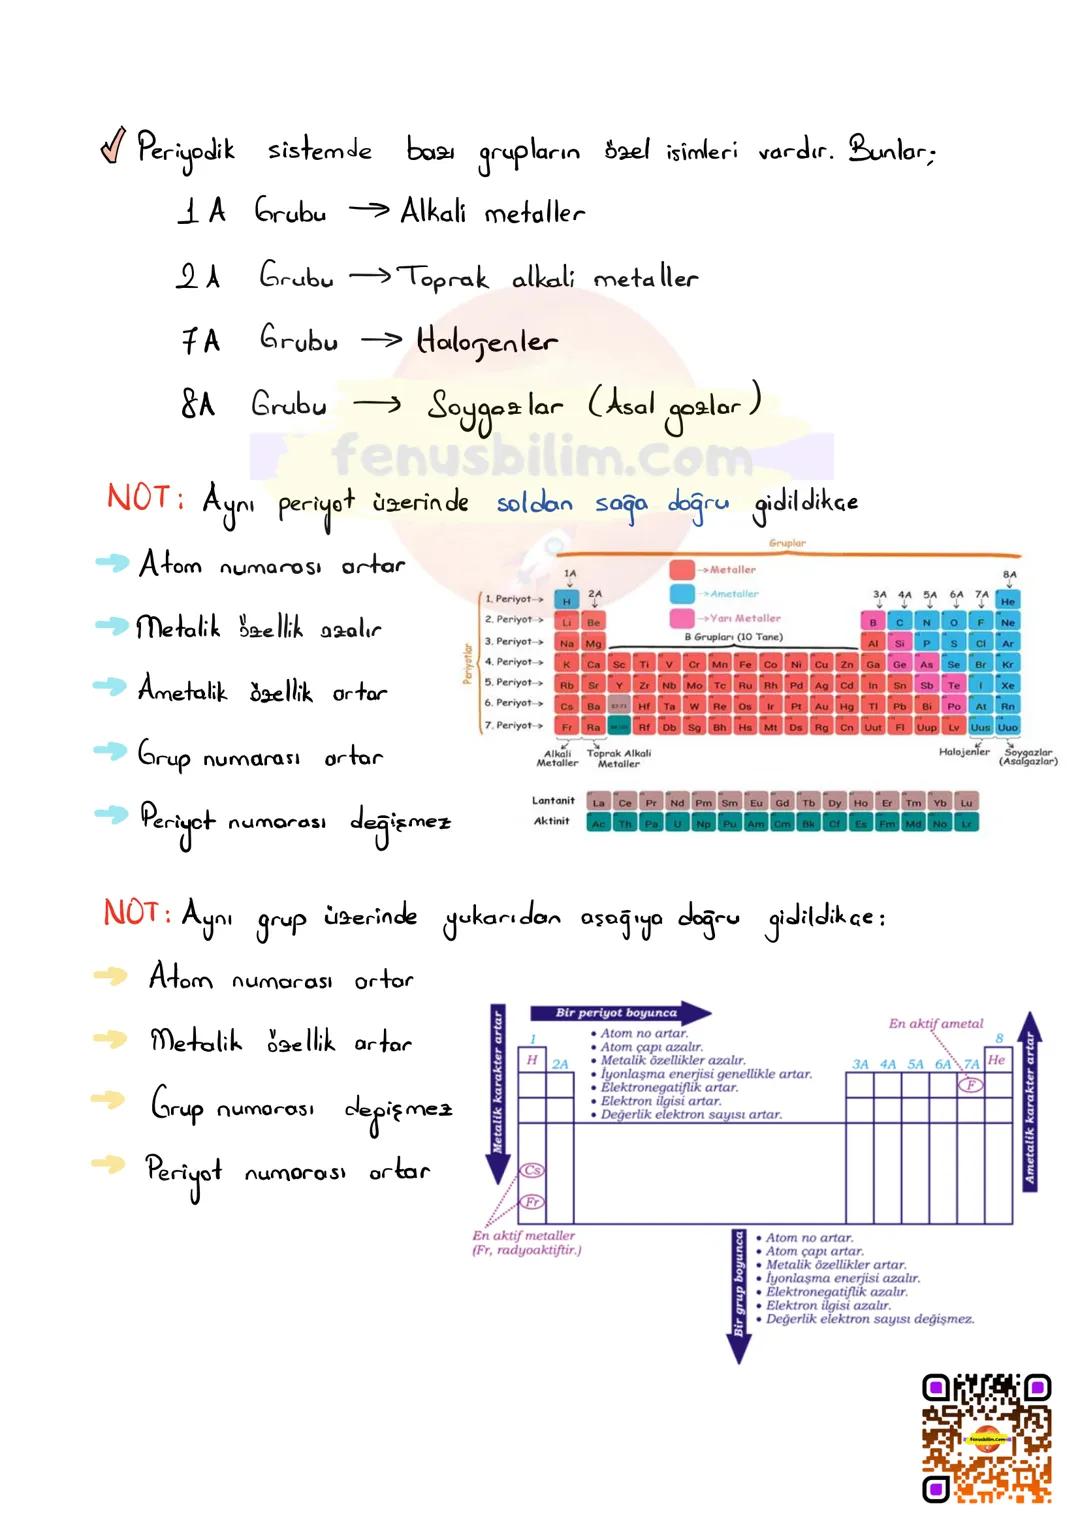 Periyodik sistemde bazı grupların özel isimleri vardır. Bunlar;
1A Grubu → Alkali metaller
2A Grubu → Toprak alkali metaller
7A Grubu → Halojenler
8A Grubu → Soygazlar (Asal gazlar)
fenusbilim.com
NOT: Aynı periyot üzerinde soldan sağa doğru gidildikçe
→ Atom numarası artar
→ Metalik özellik azalır
→ Ametalik özellik artar
→ Grup numarası artar
→ Periyot numarası değişmez
Gruplar
→Metaller
→Ametaller
→Yarı Metaller
B Grupları (10 Tane)
1A 2A 3A 4A 5A 6A 7A 8A
Periyotlar
1. Periyot→ H He
2. Periyot→ Li Be B C N O F Ne
3. Periyot→ Na Mg Al Si P S Cl Ar
4. Periyot→ K Ca Sc Ti V Cr Mn Fe Co Ni Cu Zn Ga Ge As Se Br Kr
5. Periyot→ Rb Sr Y Zr Nb Mo Tc Ru Rh Pd Ag Cd In Sn Sb Te I Xe
6. Periyot→ Cs Ba 57-71 Hf Ta W Re Os Ir Pt Au Hg Tl Pb Bi Po At Rn
7. Periyot→ Fr Ra Rf Db Sg Bh Hs Mt Ds Rg Cn Uut Fl Uup Lv Uus Uuo
Alkali Metaller
Toprak Alkali Metaller
Halojenler
Soygazlar
(Asalgazlar)
Lantanit La Ce Pr Nd Pm Sm Eu Gd Tb Dy Ho Er Tm Yb Lu
Aktinit Ac Th Pa U Np Pu Am Cm Bk Cf Es Fm Md No Lr
NOT: Aynı grup üzerinde yukarıdan aşağıya doğru gidildikçe:
→ Atom numarası artar
→ Metalik özellik artar
→ Grup numarası depişmez
→ Periyot numarası artar
Metalik karakter artar
Bir periyot boyunca
• Atom no artar.
• Atom çapı azalır.
• Metalik özellikler azalır.
• İyonlaşma enerjisi genellikle artar.
• Elektronegatiflik artar.
• Elektron ilgisi artar.
• Değerlik elektron sayısı artar.
En aktif ametal
1 8
H 2A 3A 4A 5A 6A 7A He
F
Cs
Fr
Ametalik karakter artar
En aktif metaller
(Fr, radyoaktiftir.)
Bir grup boyunca
• Atom no artar.
• Atom çapı artar.
• Metalik özellikler artar.
• İyonlaşma enerjisi azalır.
• Elektronegatiflik azalır.
• Elektron ilgisi azalır.
• Değerlik elektron sayısı değişmez.
fenusbilim.com